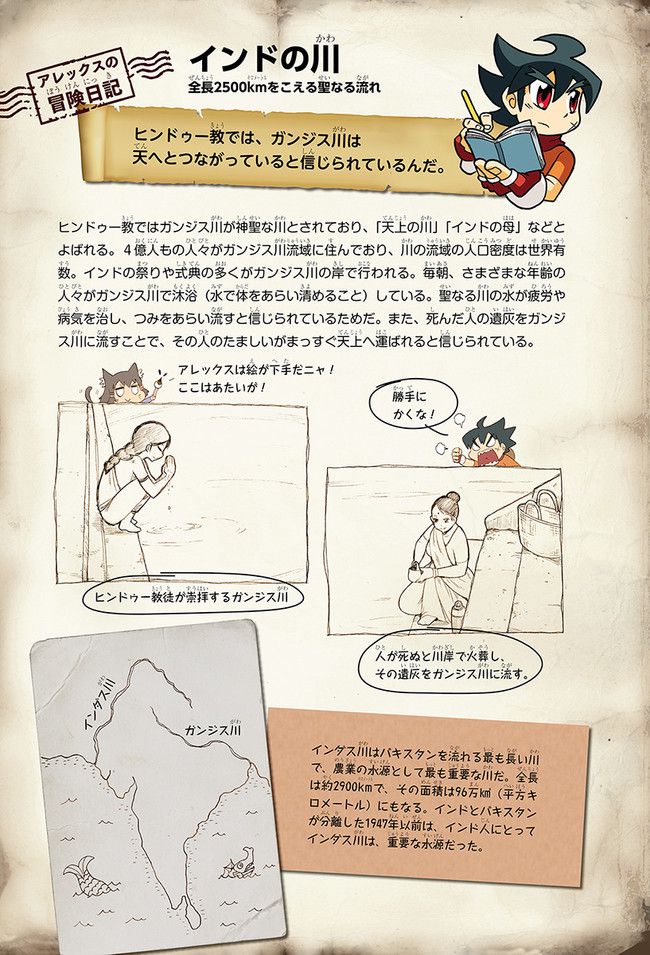 アレックスの
冒険日記
インドの川
全長2500kmをこえる聖なる流れ
ヒンドゥー教では、ガンジス川は
天へとつながっていると信じられているんだ。
ヒンドゥー教ではガンジス川が神聖な川とされており、「天上の川」「インドの母」などと
よばれる。４億人もの人々がガンジス川流域に住んでおり、川の流域の人口密度は世界有
数。インドの祭りや式典の多くがガンジス川の岸で行われる。毎朝、さまざまな年齢の
人々がガンジス川で沐浴（水で体をあらい清めること）している。聖なる川の水が疲労や
病気を治し、つみをあらい流すと信じられているためだ。また、死んだ人の遺灰をガンジ
ス川に流すことで、その人のたましいがまっすぐ天上へ運ばれると信じられている。
アレックスは絵が下手だニャ！
ここはあたいが！
勝手に
かくな！
ヒンドゥー教徒が崇拝するガンジス川
人が死ぬと川岸で火葬し、
その遺灰をガンジス川に流す。
インダス川
ガンジス川
インダス川はパキスタンを流れる最も長い川
で、農業の水源として最も重要な川だ。全長
は約2900kmで、その面積は96万km²（平方キ
ロメートル）にもなる。インドとパキスタン
が分離した1947年以前は、インド人にとって
インダス川は、重要な水源だった。